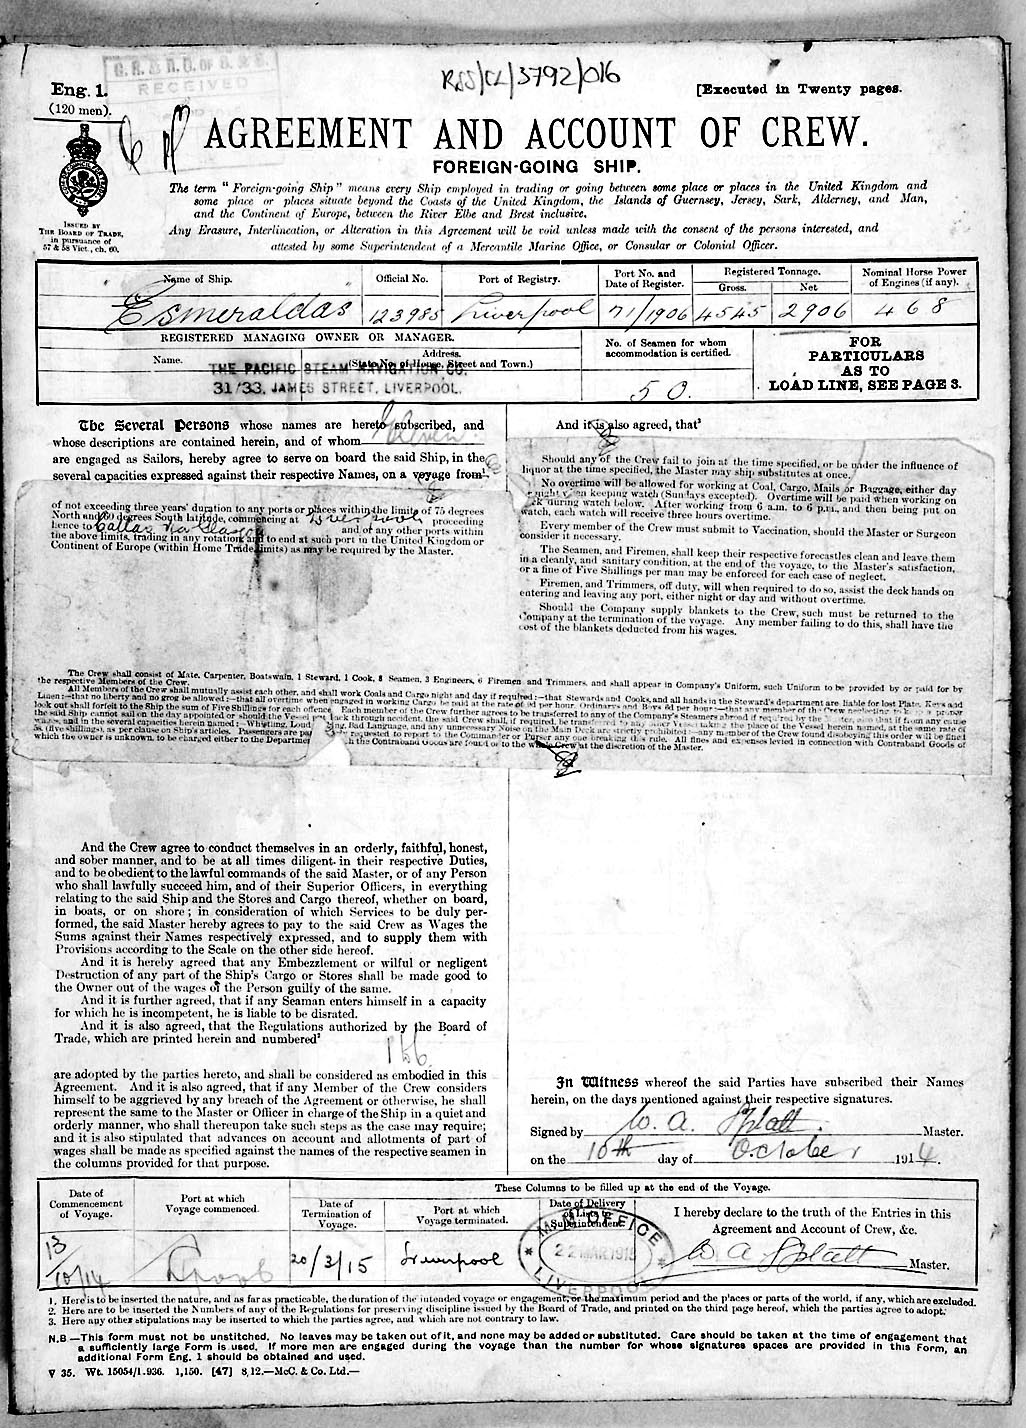 G. R. & R. O. OF S. & S.
RECEIVED
RSS/CL/3792/016
Eng. 1.
(120 men).
[Executed in Twenty pages.
AGREEMENT AND ACCOUNT OF CREW.
FOREIGN-GOING SHIP.
The term "Foreign-going Ship" means every Ship employed in trading or going between some place or places in the United Kingdom and
some place or places situate beyond the Coasts of the United Kingdom, the Islands of Guernsey, Jersey, Sark, Alderney, and Man,
and the Continent of Europe, between the River Elbe and Brest inclusive.
Any Erasure, Interlineation, or Alteration in this Agreement will be void unless made with the consent of the persons interested, and
attested by some Superintendent of a Mercantile Marine Office, or Consular or Colonial Officer.
ISSUED BY
THE BOARD OF TRADE,
in pursuance of
57 & 58 Vict., ch. 60.
Name of Ship. Official No. Port of Registry. Port No. and Date of Register. Registered Tonnage. Gross. Net Nominal Horse Power of Engines (if any).
Esmeraldas 123985 Liverpool 71/1906 4545 2906 468
REGISTERED MANAGING OWNER OR MANAGER.
Name. Address.
(State No. of House, Street and Town.)
THE PACIFIC STEAM NAVIGATION CO.
31/33, JAMES STREET, LIVERPOOL.
No. of Seamen for whom
accommodation is certified.
50.
FOR
PARTICULARS
AS TO
LOAD LINE, SEE PAGE 3.
The Several Persons whose names are hereto subscribed, and
whose descriptions are contained herein, and of whom Eleven
are engaged as Sailors, hereby agree to serve on board the said Ship, in the
several capacities expressed against their respective Names, on a voyage from¹
of not exceeding three years' duration to any ports or places within the limits of 75 degrees
North and 60 degrees South latitude, commencing at Liverpool proceeding
thence to Callao via Glasgow and or any other ports within
the above limits, trading in any rotation, and to end at such port in the United Kingdom or
Continent of Europe (within Home Trade limits) as may be required by the Master.
And it is also agreed, that³
Should any of the Crew fail to join at the time specified, or be under the influence of
liquor at the time specified, the Master may ship substitutes at once.
No overtime will be allowed for working at Coal, Cargo, Mails or Baggage, either day
or night when keeping watch (Sundays excepted). Overtime will be paid when working on
deck during watch below. After working from 6 a.m. to 6 p.m., and then being put on
watch, each watch will receive three hours overtime.
Every member of the Crew must submit to Vaccination, should the Master or Surgeon
consider it necessary.
The Seamen, and Firemen, shall keep their respective forecastles clean and leave them
in a cleanly, and sanitary condition, at the end of the voyage, to the Master's satisfaction,
or a fine of Five Shillings per man may be enforced for each case of neglect.
Firemen, and Trimmers, off duty, will when required to do so, assist the deck hands on
entering and leaving any port, either night or day and without overtime.
Should the Company supply blankets to the Crew, such must be returned to the
Company at the termination of the voyage. Any member failing to do this, shall have the
cost of the blankets deducted from his wages.
The Crew shall consist of Mate, Carpenter, Boatswain, 1 Steward, 1 Cook, 8 Seamen, 3 Engineers, 6 Firemen and Trimmers, and shall appear in Company's Uniform, such Uniform to be provided by or paid for by
the respective Members of the Crew.
All Members of the Crew shall mutually assist each other, and shall work Coals and Cargo night and day if required:—that Stewards and Cooks, and all hands in the Steward's department are liable for lost Plate, Keys and
Linen:—that no liberty and no grog be allowed:—that all overtime when engaged in working Cargo be paid at the rate of 9d per hour, Ordinaries and Boys 6d per hour:—that any member of the Crew neglecting to keep a proper
look out shall forfeit to the Ship the sum of Five Shillings for each offence. Each member of the Crew further agrees to be transferred to any of the Company's Steamers abroad if required by the Master, also that if from any cause
the said Ship cannot sail on the day appointed or should the Vessel put back through accident, the said Crew shall, if required, be transferred to any other Vessel taking the place of the Vessel herein named, at the same rate of
wages, and in the several capacities herein named:—Whistling, Loud Talking, Bad Language, and any unnecessary Noise on the Main Deck are strictly prohibited:—any member of the Crew found disobeying this order will be fined
5s (five shillings), as per clause on Ship's articles. Passengers are requested to report to the Commander or Purser any one breaking this rule. All fines and expenses levied in connection with Contraband Goods of
which the owner is unknown, to be charged either to the Department in which the Contraband Goods are found or to the whole Crew at the discretion of the Master.
And the Crew agree to conduct themselves in an orderly, faithful, honest,
and sober manner, and to be at all times diligent in their respective Duties,
and to be obedient to the lawful commands of the said Master, or of any Person
who shall lawfully succeed him, and of their Superior Officers, in everything
relating to the said Ship and the Stores and Cargo thereof, whether on board,
in boats, or on shore; in consideration of which Services to be duly per-
formed, the said Master hereby agrees to pay to the said Crew as Wages the
Sums against their Names respectively expressed, and to supply them with
Provisions according to the Scale on the other side hereof.
And it is hereby agreed that any Embezzlement or wilful or negligent
Destruction of any part of the Ship's Cargo or Stores shall be made good to
the Owner out of the wages of the Person guilty of the same.
And it is further agreed, that if any Seaman enters himself in a capacity
for which he is incompetent, he is liable to be disrated.
And it is also agreed, that the Regulations authorized by the Board of
Trade, which are printed herein and numbered²
are adopted by the parties hereto, and shall be considered as embodied in this
Agreement. And it is also agreed, that if any Member of the Crew considers
himself to be aggrieved by any breach of the Agreement or otherwise, he shall
represent the same to the Master or Officer in charge of the Ship in a quiet and
orderly manner, who shall thereupon take such steps as the case may require;
and it is also stipulated that advances on account and allotments of part of
wages shall be made as specified against the names of the respective seamen in
the columns provided for that purpose.
In Witness whereof the said Parties have subscribed their Names
herein, on the days mentioned against their respective signatures.
Signed by W. A. Splatt. Master.
on the 10th day of October 1914.
These Columns to be filled up at the end of the Voyage.
Date of Commencement of Voyage. Port at which Voyage commenced. Date of Termination of Voyage. Port at which Voyage terminated. Date of Delivery of Lists to Superintendent.
I hereby declare to the truth of the Entries in this
Agreement and Account of Crew, &c.
13/10/14 L'pool 20/3/15 Liverpool W A Splatt Master.
M. M. OFFICE
22 MAR 1915
LIVERPOOL
1. Here is to be inserted the nature, and as far as practicable, the duration of the intended voyage or engagement, or the maximum period and the places or parts of the world, if any, which are excluded.
2. Here are to be inserted the Numbers of any of the Regulations for preserving discipline issued by the Board of Trade, and printed on the third page hereof, which the parties agree to adopt.
3. Here any other stipulations may be inserted to which the parties agree, and which are not contrary to law.
N.B.—This form must not be unstitched. No leaves may be taken out of it, and none may be added or substituted. Care should be taken at the time of engagement that
a sufficiently large Form is used. If more men are engaged during the voyage than the number for whose signatures spaces are provided in this Form, an
additional Form Eng. 1 should be obtained and used.
V 35. Wt. 15054/1.936. 1,150. [47] 8,12.—McC. & Co. Ltd.—